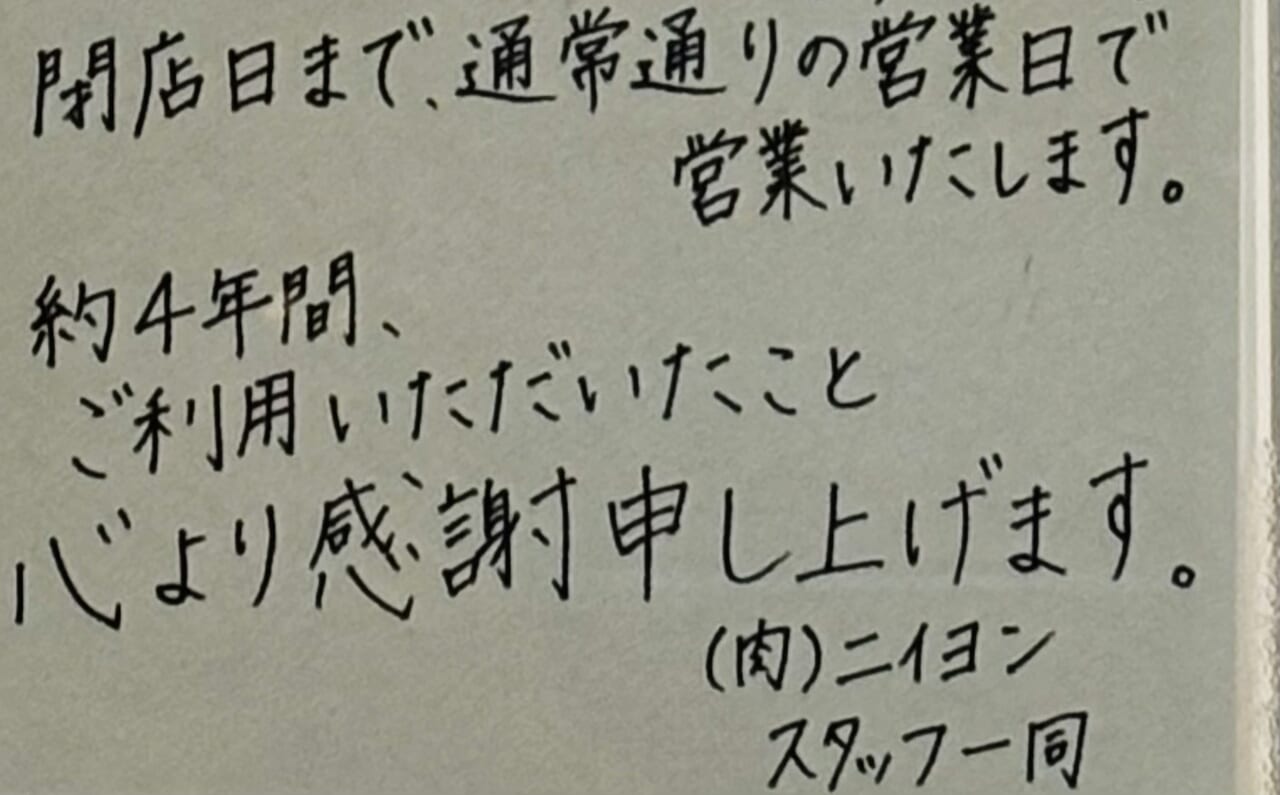 閉店日まで、通常通りの営業日で
営業いたします。
約4年間、
ご利用いただいたこと
心より感謝申し上げます。
(肉)ニイヨン
スタッフ一同